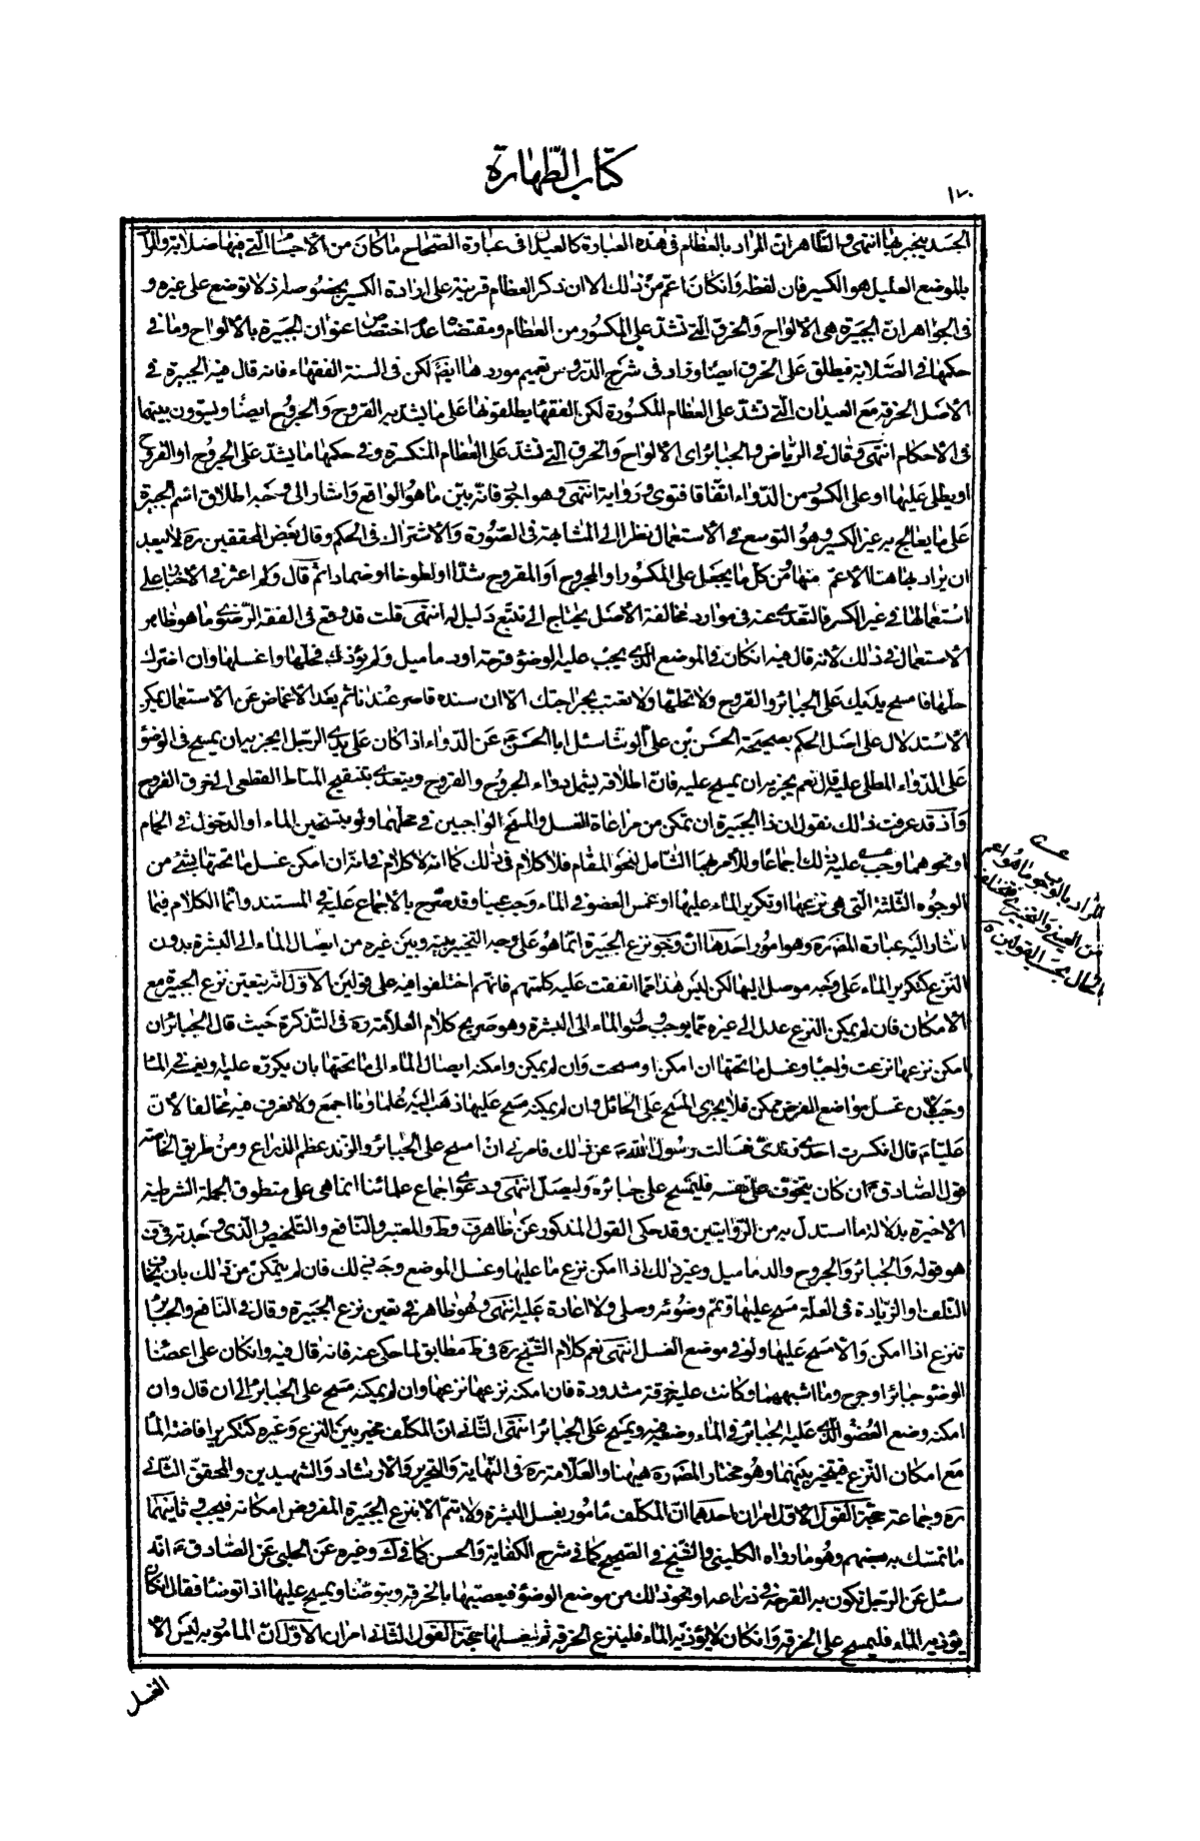 كتاب الطهارة
١٧٠
الجسد ينجبر بها انتهى والظاهر ان المراد بالعظام فى هذه العبارة كالعيدان فى عبارة الصحاح ما كان من الاجسام التي فيها صلابة والمراد
بالموضع العليل هو الكسير فان لفظه وان كان اعم من ذلك الا ان ذكر العظام قرينة على ارادة الكسير بخصوصه اذ لا توضع على غيره و
فى الجواهر ان الجبيرة هى الالواح والخرق التي تشد على المكسور من العظام ومقتضاه عدم اختصاص عنوان الجبيرة بالالواح وما في
حكمها فى الصلابة فيطلق على الخرق ايضا وزاد فى شرح الدروس تعميم موردها ايضا لكن فى السنة الفقهاء فانه قال فيه الجبيرة في
الاصل الخرقة مع العيدان التي تشد على العظام المكسورة لكن الفقهاء يطلقونها على ما يشد به القروح والجروح ايضا ويسوون بينهما
فى الاحكام انتهى وقال فى الرياض والجبائر اى الالواح والخرق التي تشد على العظام المنكسرة وفي حكمها ما يشد على الجروح او القروح
او يطلى عليها او على الكسور من الدواء اتفاقا فتوى ورواية انتهى وهو اجود فانه بين ما هو الواقع واشار الى وجه اطلاق اسم الجبيرة
على ما يعالج به غير الكسير وهو التوسع في الاستعمال نظرا الى المشابهة فى الصورة والاشتراك فى الحكم وقال بعض المحققين ره لا يبعد
ان يراد بها هنا الاعم منها ومن كل ما يجعل على المكسور او المجروح او المقروح شدا او لطوخا او ضمادا ثم قال ولم اعثر فى الاخبار على
استعمالها في غير الكسر فالتعدى عنه فى موارد مخالفة الاصل يحتاج الى تتبع دليل له انتهى قلت قد وقع فى الفقه الرضوى ما هو ظاهر
الاستعمال في ذلك لانه قال فيه ان كان في الموضع الذى يجب عليه الوضوء قرحة او دماميل ولم يؤذك فحلها واغسلها وان اضرك
حلها فامسح يديك على الجبائر والقروح ولا تحلها ولا تعبث بجراحتك الا ان سنده قاصر عندنا ثم بعد الاغماض عن الاستعمال يمكن
الاستدلال على اصل الحكم بصحيحة الحسن بن على الوشا سئل ابا الحسن ع عن الدواء اذا كان على يدى الرجل ايجزيه ان يمسح فى الوضوء
على الدواء المطلى عليه قال نعم يجزيه ان يمسح عليه فان اطلاقه يشمل دواء الجروح والقروح ويتعدى بتنقيح المناط القطعى الى خرق القروح
واذ قد عرفت ذلك نقول ان ذا الجبيرة ان تمكن من مراعاة الغسل والمسح الواجبين في محلهما ولو بتسخين الماء او الدخول في الحمام
او نحوهما وجب عليه ذلك اجماعا وللامر بهما الشامل لنحو المقام فلا كلام في ذلك كما انه لا كلام في انه ان امكن غسل ما تحتها بشئ من
الوجوه الثلثة التى هى نزعها او تكرير الماء عليها او غمس العضو في الماء وجب عينا وقد صرح بالاجماع عليه فى المستند وانما الكلام فيما
اشار اليه عبارة المصنف ره وهو امور احدها ان وجوب نزع الجبيرة انما هو على وجه التخيير بينه وبين غيره من ايصال الماء الى البشرة بدون
النزع كتكرير الماء على وجه موصل اليها لكن ليس هذا مما اتفقت عليه كلمتهم فانهم اختلفوا فيه على قولين الاول انه يتعين نزع الجبيرة مع
الامكان فان لم يمكن النزع عدل الى غيره مما يوجب وصول الماء الى البشرة وهو صريح كلام العلامة ره فى التذكرة حيث قال الجبائر ان
امكن نزعها نزعت واجبا وغسل ما تحتها ان امكن او مسحت وان لم يمكن وامكنه ايصال الماء الى ما تحتها بان يكرره عليه او يغمسه في الماء
وجب لان غسل مواضع الفرض ممكن فلا يجزى المسح على الحائل وان لم يمكنه مسح عليها ذهب اليه علماؤنا اجمع ولا نعرف فيه مخالفا لان
عليا ع قال انكسرت احدى زندى فسالت رسول الله ص عن ذلك فامرنى ان امسح على الجبائر والزند عظم الذراع ومن طريق الخاصة
قول الصادق ع ان كان يتخوف على نفسه فليمسح على جبائره وليصل انتهى ودعوى اجماع علمائنا انما هى على منطوق الجملة الشرطية
الاخيرة بدلالة ما استدل به من الروايتين وقد حكى القول المذكور عن ظاهر ف وط والمعتبر والنافع والتلخيص والذى وجدته فى ف
هو قوله والجبائر والجروح والدماميل وغير ذلك اذا امكن نزع ما عليها وغسل الموضع وجب ذلك فان لم يتمكن من ذلك بان يخاف
التلف او الزيادة فى العلة مسح عليها وتمم وضوئه وصلى ولا اعادة عليه انتهى وهو ظاهر في تعين نزع الجبيرة وقال فى النافع والجبائر
تنزع اذا امكن والا مسح عليها ولو في موضع الغسل انتهى نعم كلام الشيخ ره فى ط مطابق لما حكى عنه فانه قال فيه وان كان على اعضاء
الوضوء جبائر او جرح وما اشبههما وكانت عليه خرقة مشدودة فان امكنه نزعها نزعها وان لم يمكنه مسح على الجبائر الى ان قال وان
امكنه وضع العضو الذى عليه الجبائر في الماء وضعه فيه ويمسح على الجبائر انتهى الثانى ان المكلف مخير بين النزع وغيره كتكرير افاضة الماء
مع امكان النزع فيتخير بينهما وهو مختار المصنف ره هيهنا والعلامة ره فى النهاية والتحرير والارشاد والشهيدين والمحقق الثانى
ره وجماعة حجة القول الاول امران احدهما ان المكلف مامور بغسل البشرة ولا يتم الا بنزع الجبيرة المفروض امكانه فيجب وثانيهما
ما تمسك به بعضهم وهو ما رواه الكلينى والشيخ في الصحيح كما في شرح الكفاية والحسن كما فى ك وغيره عن الحلبى عن الصادق ع انه
سئل عن الرجل تكون به القرحة في ذراعه او نحو ذلك من موضع الوضوء فيعصبها بالخرقة ويتوضأ ويمسح عليها اذا توضأ فقال ان كان
يؤذيه الماء فليمسح على الخرقة وان كان لا يؤذيه الماء فلينزع الخرقة ثم ليغسلها حجة القول الثانى امران الاول ان المامور به ليس الا
الغسل
المراد بالوجوب ما هو اعم
من العينى والتخييرى فيختلف
الحال بحسب القولين